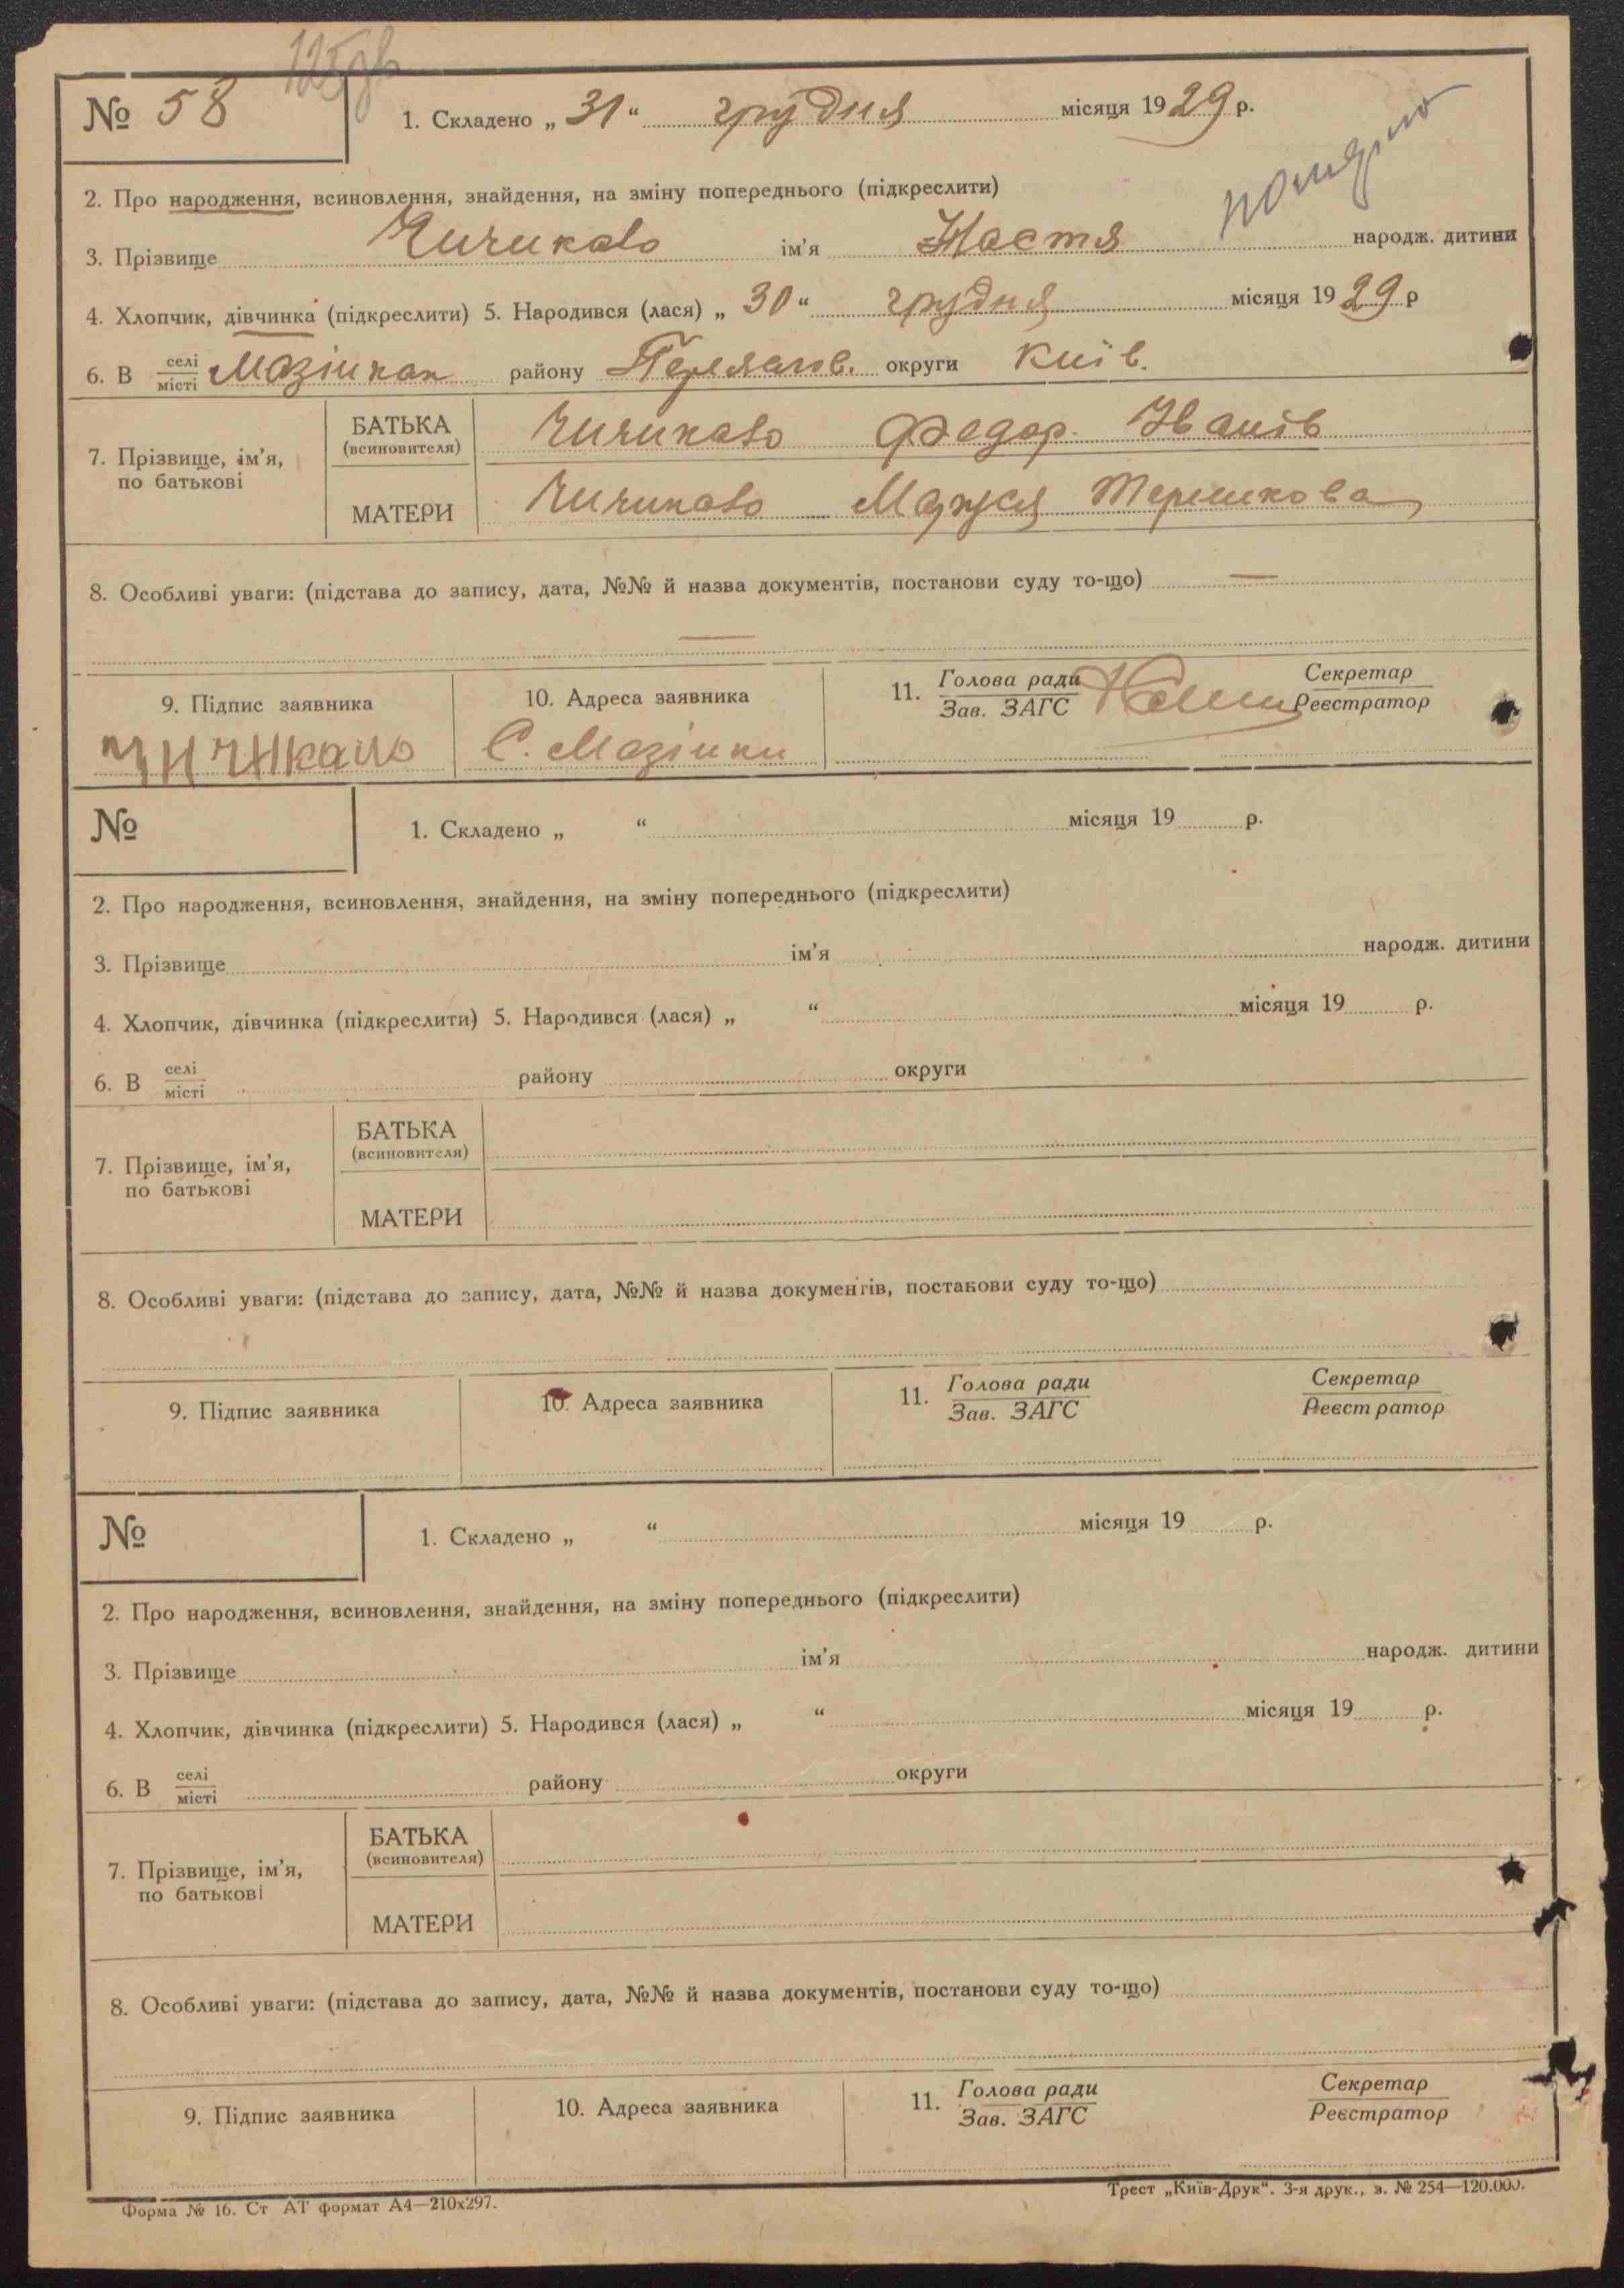 № 58
1. Складено „ 31 “ грудня місяця 1929 р.
2. Про народження, всиновлення, знайдення, на зміну попереднього (підкреслити)
3. Прізвище Чичикало ім'я Настя народж. дитини
4. Хлопчик, дівчинка (підкреслити) 5. Народився (лася) „ 30 “ грудня місяця 19 29 р
6. В селі/місті Мазінках району Переяслів. округи Київ.
7. Прізвище, ім'я, по батькові
БАТЬКА (всиновителя) Чичикало Федор Іванів
МАТЕРИ Чичикало Мария Терешкова
8. Особливі уваги: (підстава до запису, дата, №№ й назва документів, постанови суду то-що) —
—
9. Підпис заявника
10. Адреса заявника
11. Голова ради/Зав. ЗАГС
Секретар/Реєстратор
Чичикало
С. Мазінки
№
1. Складено „ “ місяця 19 р.
2. Про народження, всиновлення, знайдення, на зміну попереднього (підкреслити)
3. Прізвище ім'я народж. дитини
4. Хлопчик, дівчинка (підкреслити) 5. Народився (лася) „ “ місяця 19 р.
6. В селі/місті району округи
7. Прізвище, ім'я, по батькові
БАТЬКА (всиновителя)
МАТЕРИ
8. Особливі уваги: (підстава до запису, дата, №№ й назва документів, постанови суду то-що)
9. Підпис заявника
10. Адреса заявника
11. Голова ради/Зав. ЗАГС
Секретар/Реєстратор
№
1. Складено „ “ місяця 19 р.
2. Про народження, всиновлення, знайдення, на зміну попереднього (підкреслити)
3. Прізвище ім'я народж. дитини
4. Хлопчик, дівчинка (підкреслити) 5. Народився (лася) „ “ місяця 19 р.
6. В селі/місті району округи
7. Прізвище, ім'я, по батькові
БАТЬКА (всиновителя)
МАТЕРИ
8. Особливі уваги: (підстава до запису, дата, №№ й назва документів, постанови суду то-що)
9. Підпис заявника
10. Адреса заявника
11. Голова ради/Зав. ЗАГС
Секретар/Реєстратор
Форма № 16. Ст АТ формат А4—210х297.
Трест „Київ-Друк“. 3-я друк., з. № 254—120.000.